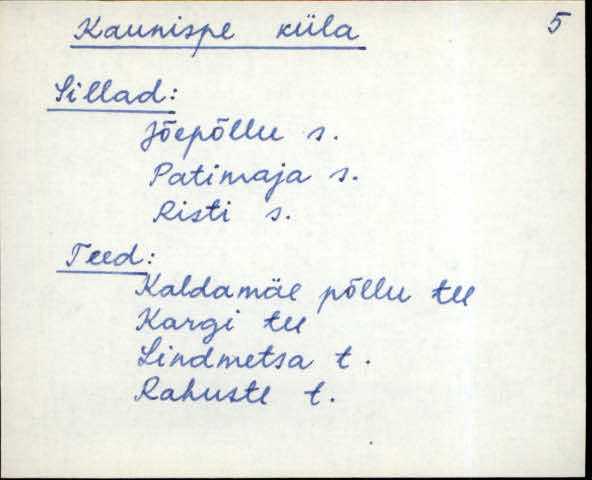 Kaunispe küla 5
Sillad:
Jõepõllu s.
Patimaja s.
Risti s.
Teed:
Kaldamäe põllu tee
Kargi tee
Lindmetsa t.
Rahuste t.